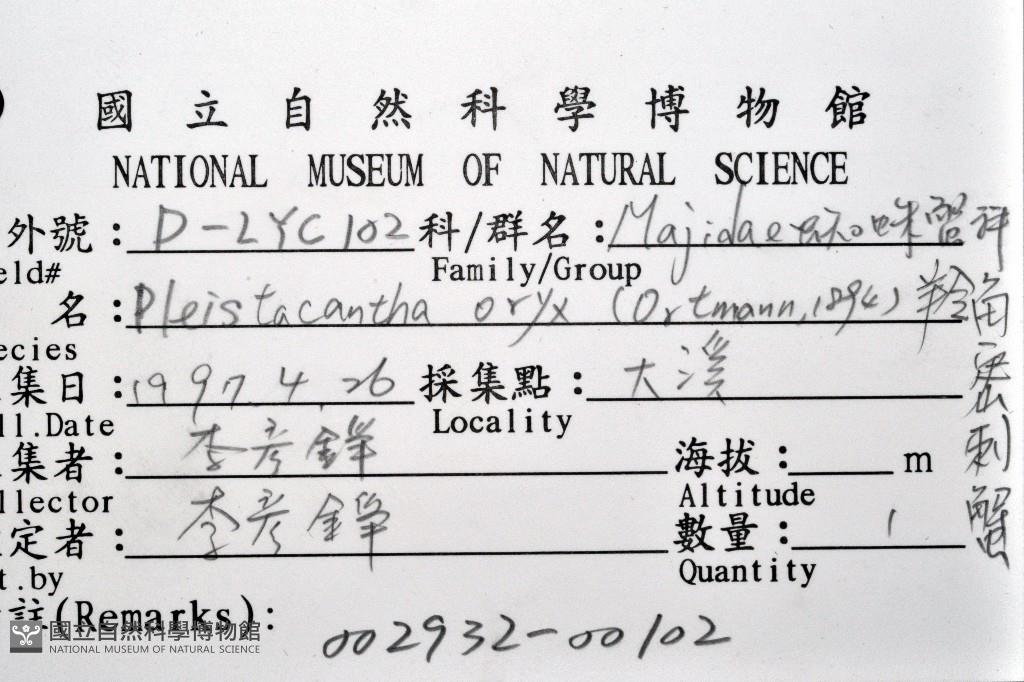 國立自然科學博物館
NATIONAL MUSEUM OF NATURAL SCIENCE
外號: D-LYC102 科/群名: Majidae 蜘蛛蟹科
eld# Family/Group
名: Pleistacantha oryx (Ortmann, 1894) 羚角密刺蟹
ecies
集日: 1997.4.26 採集點: 大溪
ll.Date Locality
集者: 李彥錚 海拔: m
llector Altitude
定者: 李彥錚 數量: 1
t.by Quantity
註(Remarks):
002932-00102
國立自然科學博物館
NATIONAL MUSEUM OF NATURAL SCIENCE